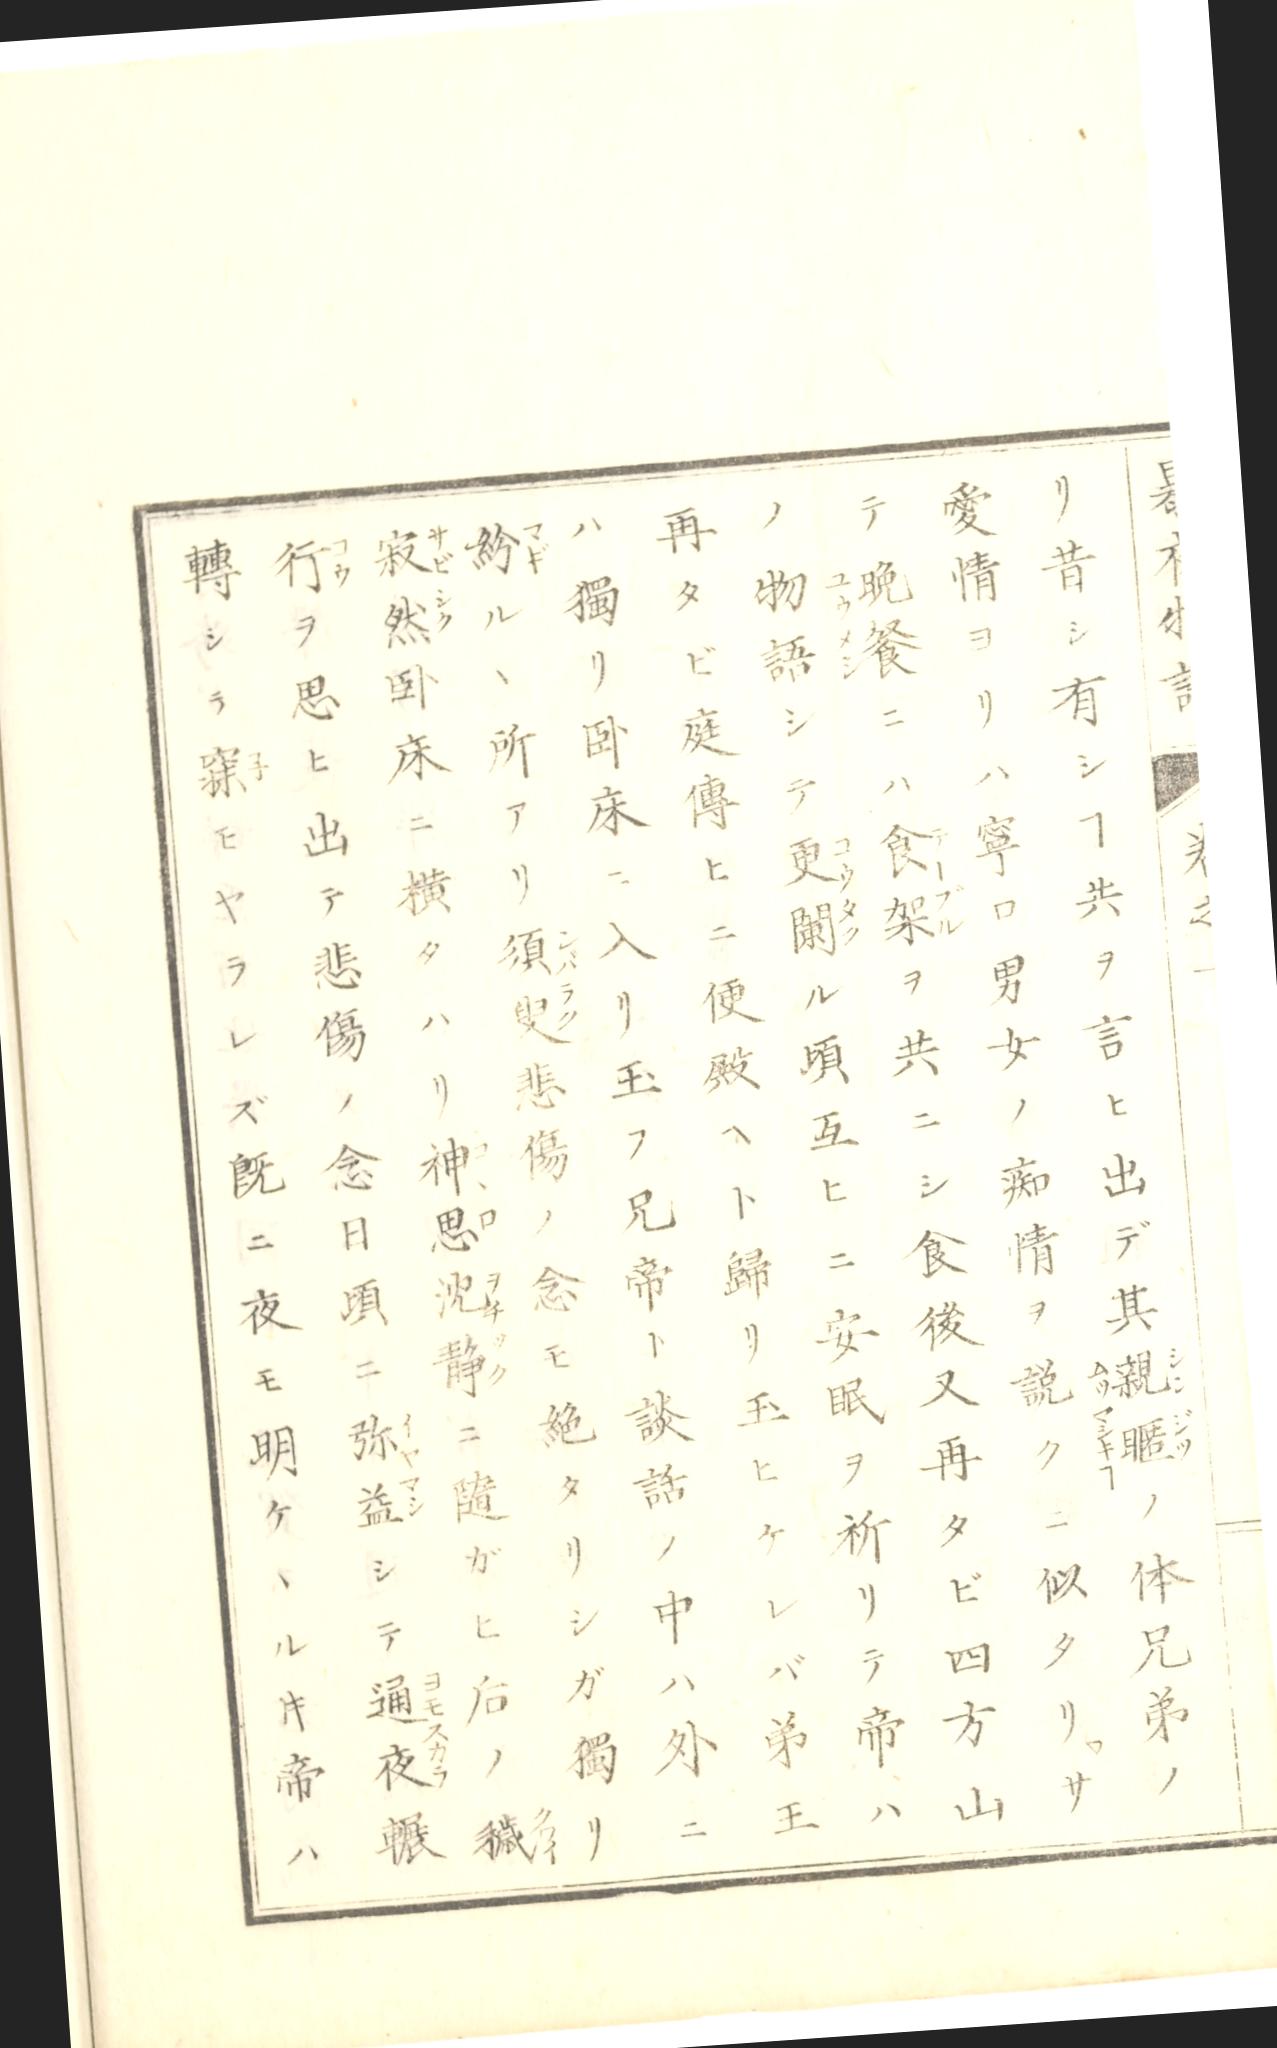 リ昔シ有シヿ共ヲ言ヒ出デ其親暱ノ体兄弟ノ
愛情ヨリハ寧ロ男女ノ痴情ヲ説クニ似タリサ
テ晩餐ニハ食架ヲ共ニシ食後又再タビ四方山
ノ物語シテ更闌ル頃互ヒニ安眠ヲ祈リテ帝ハ
再タビ庭傳ヒニ便殿ヘト歸リ玉ヒケレバ弟王
ハ獨リ卧床ニ入リ玉フ兄帝ト談話ノ中ハ外ニ
紛ルヽ所アリ須臾悲傷ノ念モ絶タリシガ獨リ
寂然卧床ニ横タハリ神思沈静ニ隨ガヒ后ノ穢
行ヲ思ヒ出テ悲傷ノ念日頃ニ弥益シテ通夜輾
轉シテ寐モヤラレズ既ニ夜モ明ケヽルキ帝ハ